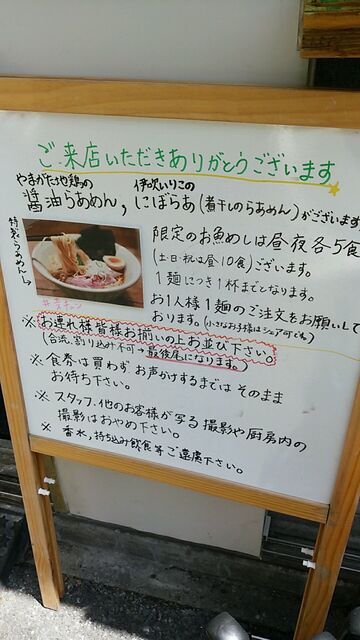 ご来店いただきありがとうございます
やまがた地鶏の
醤油らあめん,
伊吹いりこの
にぼらあ(煮干しのらあめん)がございます
特製らあめん→
限定のお魚めしは昼夜各5食
(土・日・祝は昼10食)ございます。
1麺につき1杯までとなります。
お1人様1麺のご注文をお願いして
おります。(小さなお子様はシェア可でね)
※お連れ様皆様お揃いの上お並び下さい。
(合流、割り込み不可→最後尾になります。)
※食券は買わず、お声かけするまでそのまま
お待ち下さい。
※スタッフ、他のお客様が写る撮影や厨房内の
撮影はおやめ下さい。
※香水,持ち込み飲食等ご遠慮下さい。